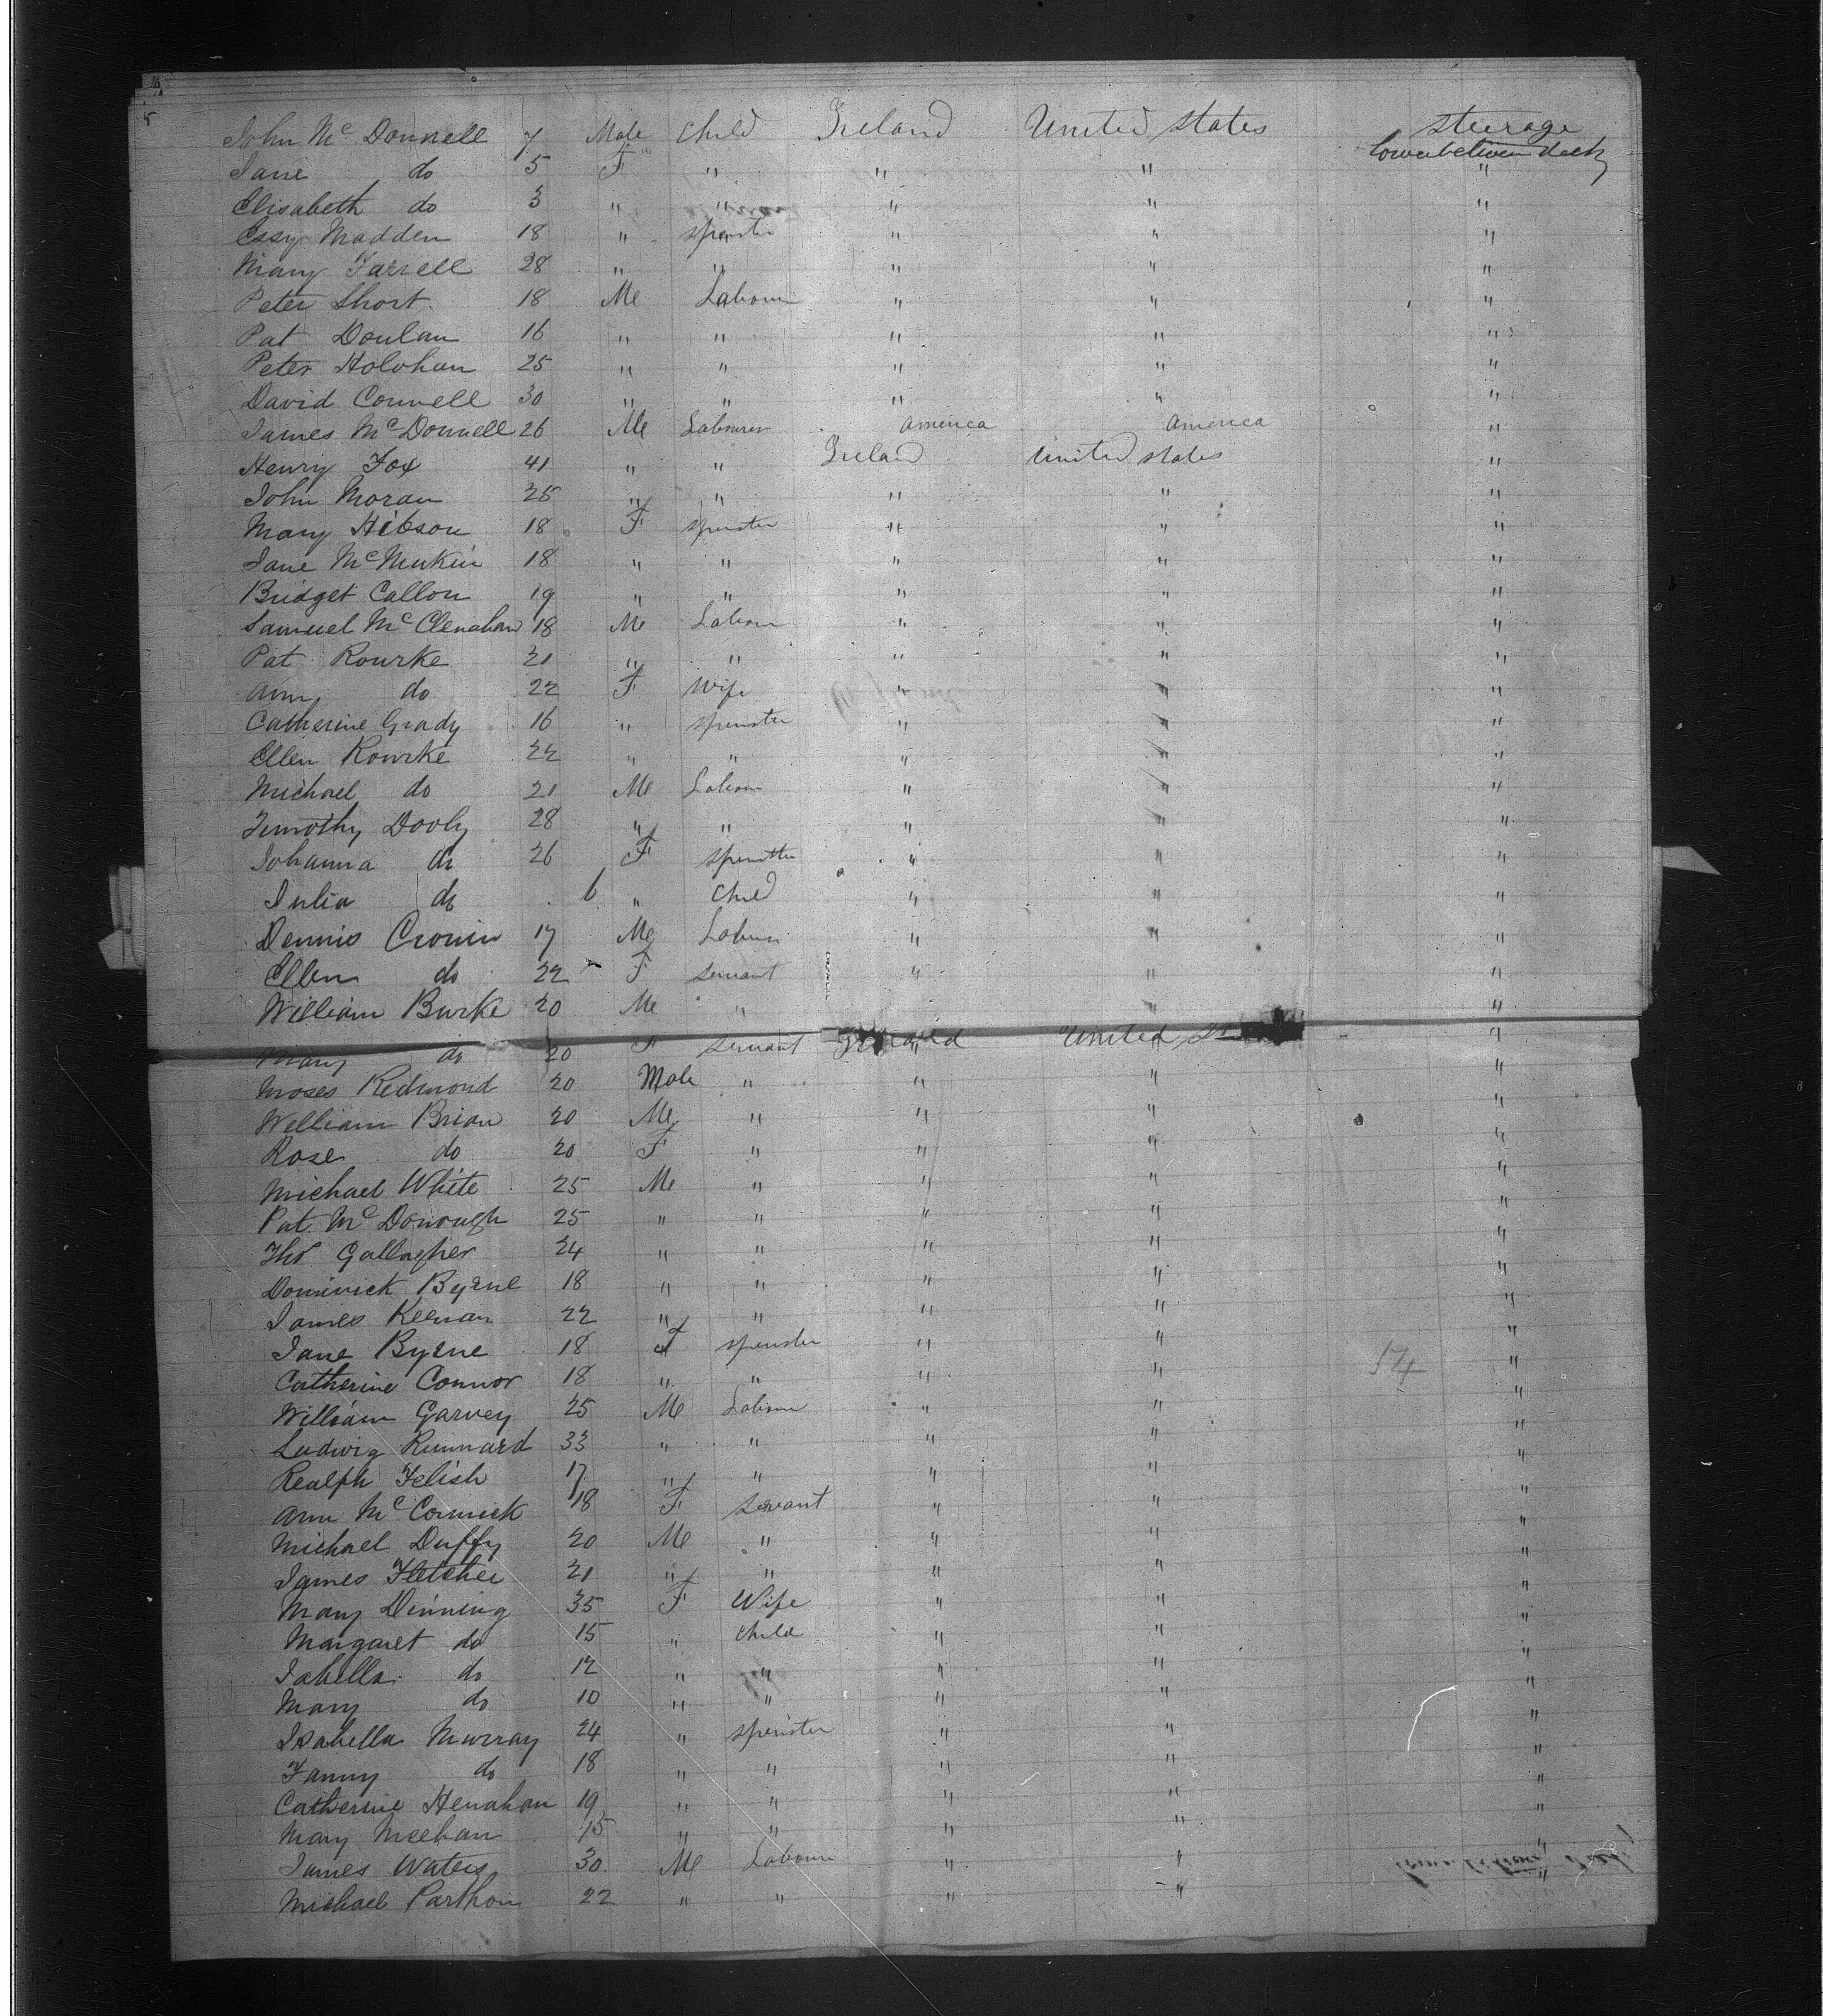 John Mc Donnell 7 Male Child Ireland United States steerage
lower between deck
Jane do 5 F " " " "
Elisabeth do 3 " " " " "
Essy Madden 18 " spinster " " "
Mary Farrell 28 " " " " "
Peter Short 18 Me Labour " " "
Pat Doulan 16 " " " " "
Peter Holohan 25 " " " " "
David Connell 30 " " " " "
James McDonnell 26 Me Labourer America America "
Henry Fox 41 " " Ireland United States "
John Moran 25 " " " " "
Mary Hibson 18 F spinster " " "
Jane Mc " 18 " " " " "
Bridget Callon 19 " " " " "
Samuel Mc Clenahan 18 Me Labour " " "
Pat Rourke 21 " " " " "
Ann do 22 F Wife " " "
Catherine Grady 16 " spinster " " "
Ellen Rourke 22 " " " " "
Michael do 21 Me Labour " " "
Timothy Dooly 28 " " " " "
Johanna do 26 F spinster " " "
Julia do 6 " Child " " "
Dennis Cronin 17 Me Labour " " "
Ellen do 22 F servant " " "
William Burke 20 Me " " " "
Mary do 20 F servant Ireland United St "
Moses Redmond 20 Male " " " "
William Brian 20 Me " " " "
Rose do 20 F " " " "
Michael White 25 Me " " " "
Pat Mc Donough 25 " " " " "
Thos Gallagher 24 " " " " "
Dominick Byrne 18 " " " " "
James Keenan 22 " " " " "
Jane Byrne 18 F spinster " " "
Catherine Connor 18 " " " " "
54
William Garvey 25 Me Labour " " "
Ludwig Runnard 33 " " " " "
Realph Felish 17 " " " " "
Ann Mc Cormick 18 F Servant " " "
Michael Duffy 20 Me " " " "
James Fletcher 21 " " " " "
Mary Dinning 35 F Wife " " "
Margaret do 15 " child " " "
Isabella do 12 " " " " "
Mary do 10 " " " " "
Isabella Murray 24 " spinster " " "
Fanny do 18 " " " " "
Catherine Henahan 19 " " " " "
Mary Meehan 15 " " " " "
James Waters 30 Me Labour " " "
Michael Parthon 22 " " " "